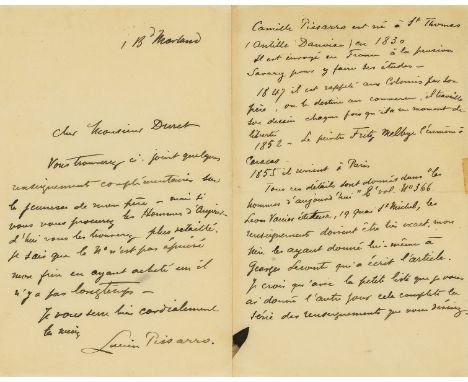 1 Bd Morland
Cher Monsieur Duret
Vous trouverez ci joint quelques
renseignements complémentaires sur
la jeunesse de mon père — mais si
vous vous procurez les Hommes d'Aujour-
d'hui vous les trouverez plus détaillé.
Je sais que le No n'est pas épuisé
mon frère en ayant acheté un il
n'y a pas longtemps —
Je vous serre bien cordialement
la main
Lucien Pissarro.
Camille Pissarro est né à St Thomas
(Antille Danoise) en 1830
Il est envoyé en France à la pension
Savary pour y faire ses études —
1847 il est rappelé aux Colonies par son
père, on le destine au commerce, il travaille
son dessin chaque fois qu'il a un moment de
liberté
1852 — Le peintre Fritz Melbye l'emmène à
Caracas
1855 il revient à Paris
Tous ces détails sont donnés dans "les
hommes d'aujourd'hui" 8e vol. No 366
Léon Vanier éditeur, 19 quai St Michel, les
renseignements doivent être bien exact, mon
père les ayant donné lui-même à
Georges Lecomte qui a écrit l'article.
Je crois qu'avec la petite liste que je vous
ai donné l'autre jour cela complète la
série des renseignements que vous désiriez.